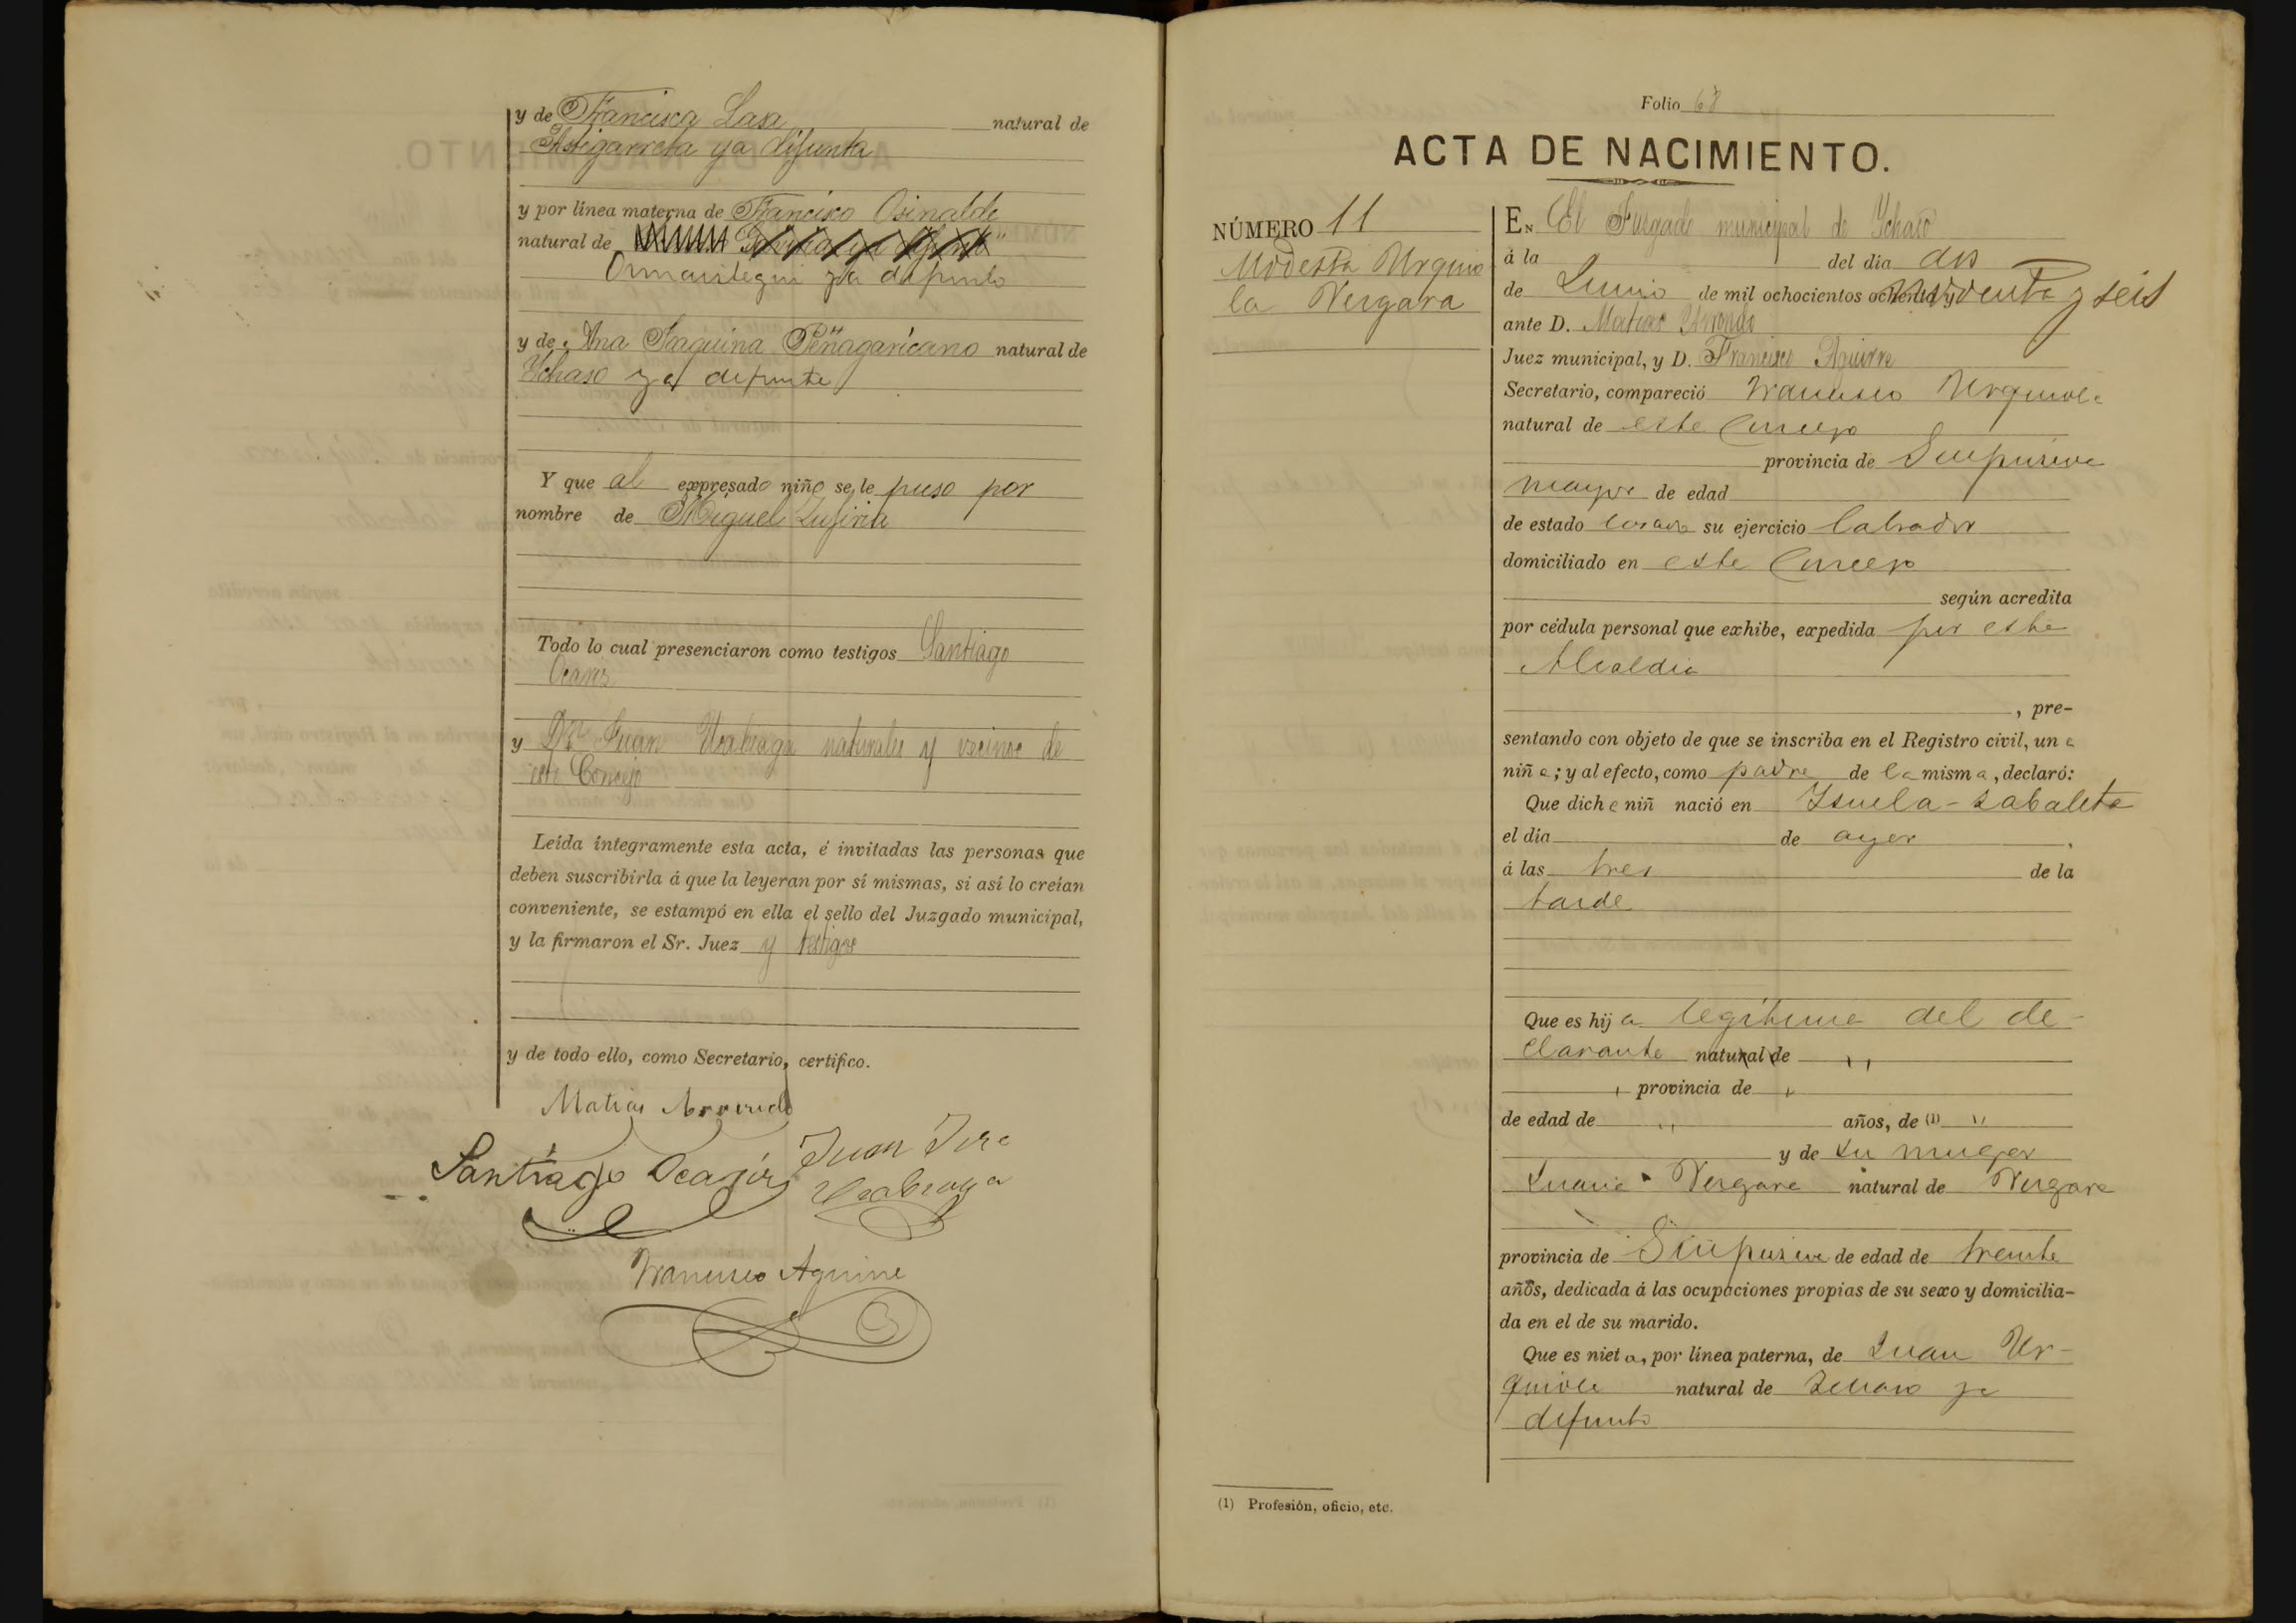 y de Francisca Lasa natural de
Astigarreta ya difunta
y por línea materna de Francisco Osinalde
natural de
Ormaiztegui ya difunto
y de Ana Joaquina Peñagaricano natural de
Ychaso ya difunta
Y que al expresado niño se le puso por
nombre de Miguel
Todo lo cual presenciaron como testigos Santiago
Ocariz
y Dn Juan naturales y vecinos de
este Concejo
Leída íntegramente esta acta, é invitadas las personas que
deben suscribirla á que la leyeran por sí mismas, si así lo creían
conveniente, se estampó en ella el sello del Juzgado municipal,
y la firmaron el Sr. Juez y testigos
y de todo ello, como Secretario, certifico.
Matias Arrondo
Santiago Ocariz Juan José
Francisco Aguirre
Folio 68
ACTA DE NACIMIENTO.
NÚMERO 11
Modesta Urquio
la Vergara
EN El Jusgado municipal de Ychaso
á la del día dos
de Junio de mil ochocientos ochenta y noventa y seis
ante D. Matias Arrondo
Juez municipal, y D. Francisco Aguirre
Secretario, compareció Francisco Urquiola
natural de este Concejo
provincia de Guipuzcoa
mayor de edad
de estado casado su ejercicio labrador
domiciliado en este Concejo
según acredita
por cédula personal que exhibe, expedida por esta
Alcaldia
, pre-
sentando con objeto de que se inscriba en el Registro civil, un a
niñ a; y al efecto, como padre de la mism a, declaró:
Que dich a niñ nació en Ysuela-sabaleta
el día de ayer,
á las tres de la
tarde
Que es hij a legitima del de-
clarante natural de "
" provincia de "
de edad de " años, de (1) "
y de su muger
Juana Vergara natural de Vergara
provincia de Guipuzcoa de edad de treinta
años, dedicada á las ocupaciones propias de su sexo y domicilia-
da en el de su marido.
Que es niet a, por línea paterna, de Juan Ur-
quiola natural de Ichaso ya
difunto
(1) Profesión, oficio, etc.